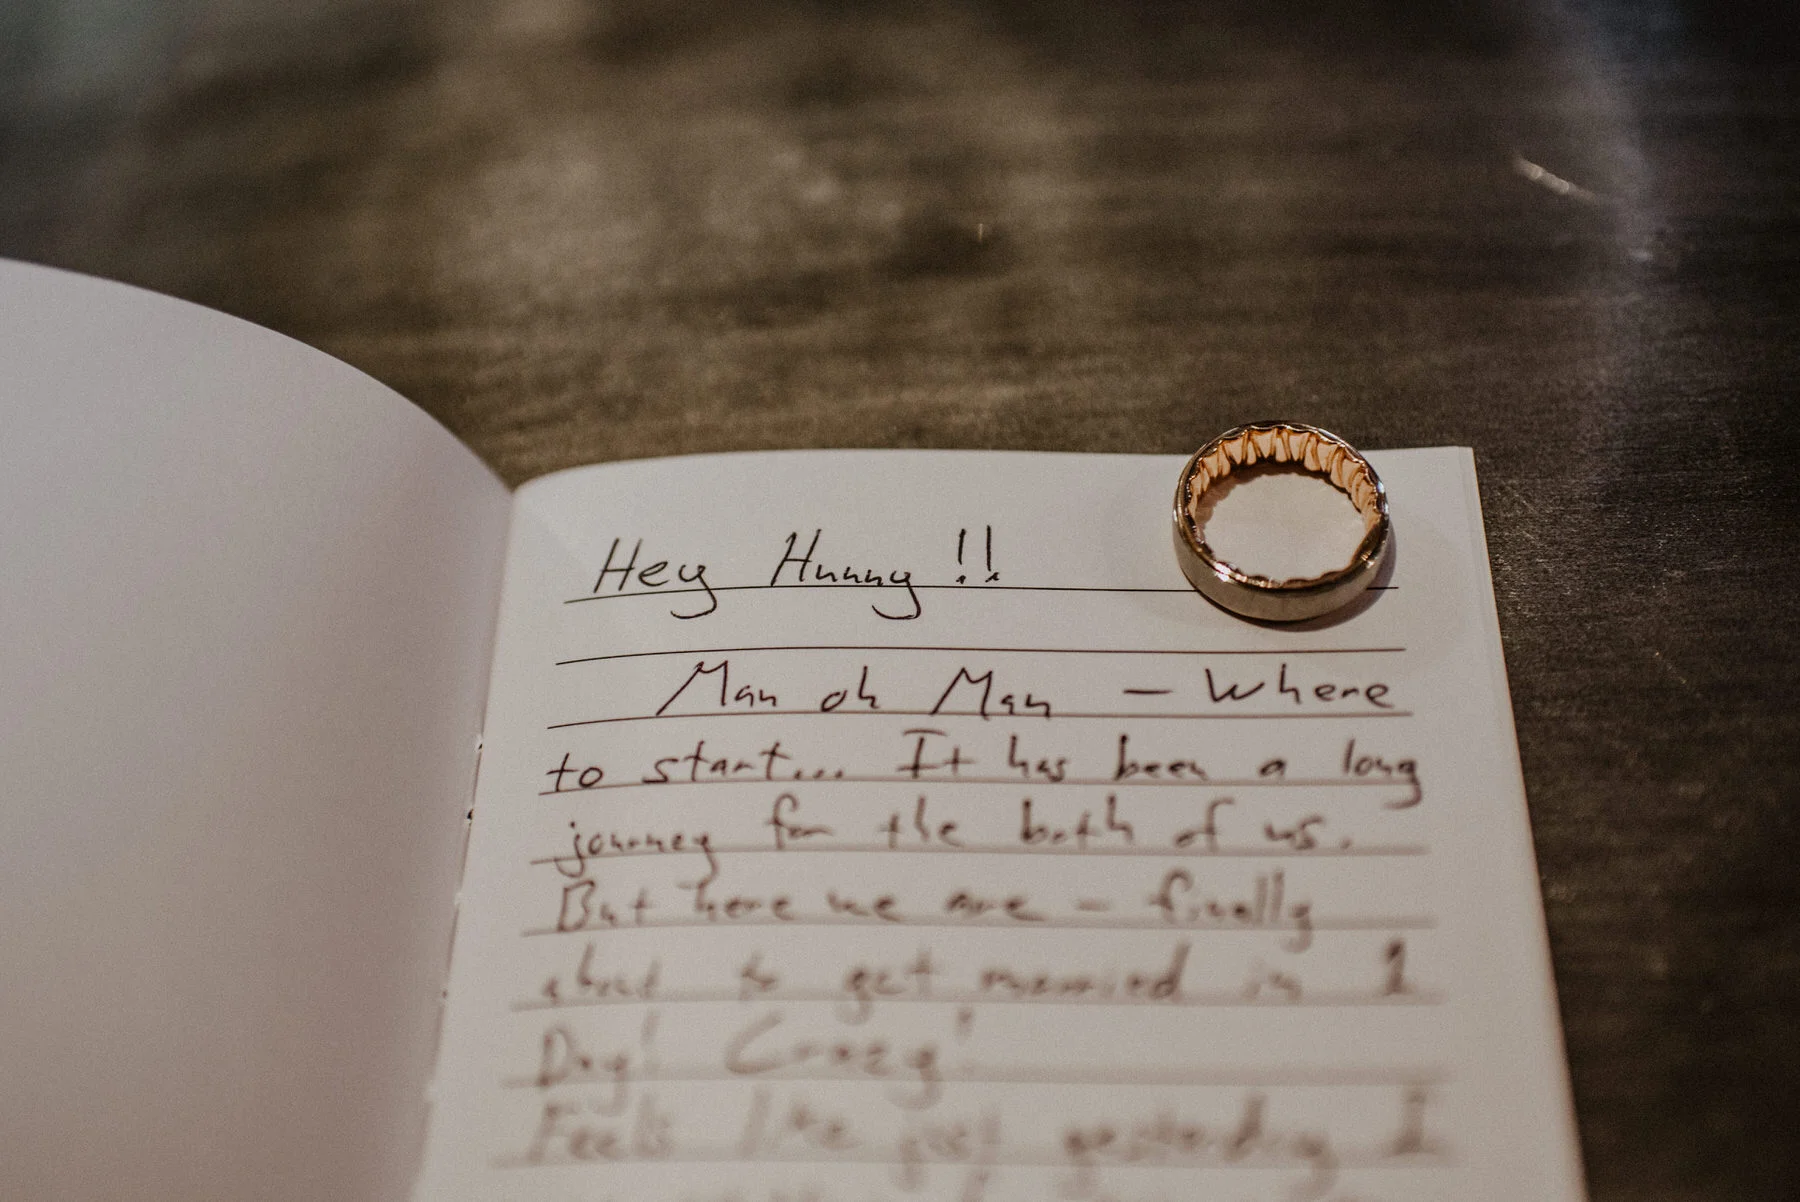 Hey Hunny !!
Man oh Man — Where
to start... It has been a long
journey for the both of us.
But here we are - finally
about to get married in 1
Day! Crazy!
Feels like just yesterday I